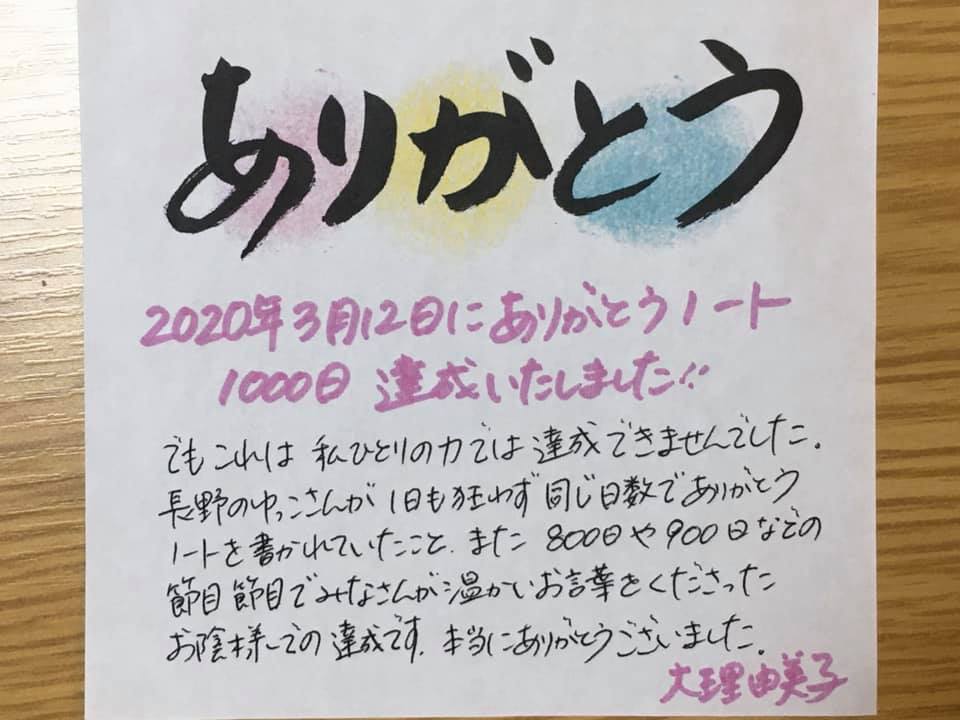 ありがとう
2020年3月12日にありがとうノート
1000日 達成いたしました!!
でもこれは 私ひとりの力では達成できませんでした。
長野のゆっこさんが 1日も狂わず同じ日数でありがとう
ノートを書かれていたこと、また 800日や900日などの
節目節目でみなさんが温かいお言葉をくださった
お陰様での達成です。本当にありがとうございました。
大理由美子